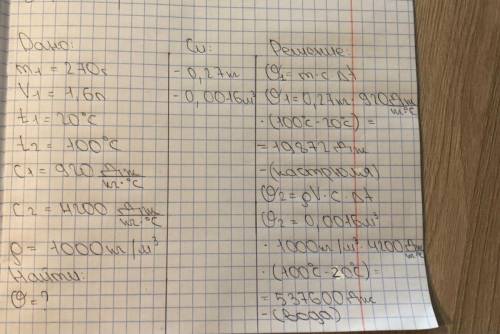 Дано:
m1 = 270г
V1 = 1,6л
t1 = 20°C
t2 = 100°C
c1 = 920 Дж/кг·°C
c2 = 4200 Дж/кг·°C
ρ = 1000кг/м³
Найти:
Q = ?
Си:
- 0,27кг
- 0,0016м³
Решение:
Q1 = m·c·Δt
Q1 = 0,27кг · 920 Дж/кг·°C
· (100°C - 20°C) =
= 19872 Дж
- (кастрюля)
Q2 = ρV·c·Δt
Q2 = 0,0016м³
· 1000кг/м³ · 4200 Дж/кг·°C
· (100°C - 20°C) =
= 537600 Дж
- (вода)